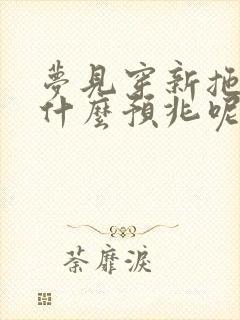 夢見穿新拖
什麼預兆呢
荼靡淚